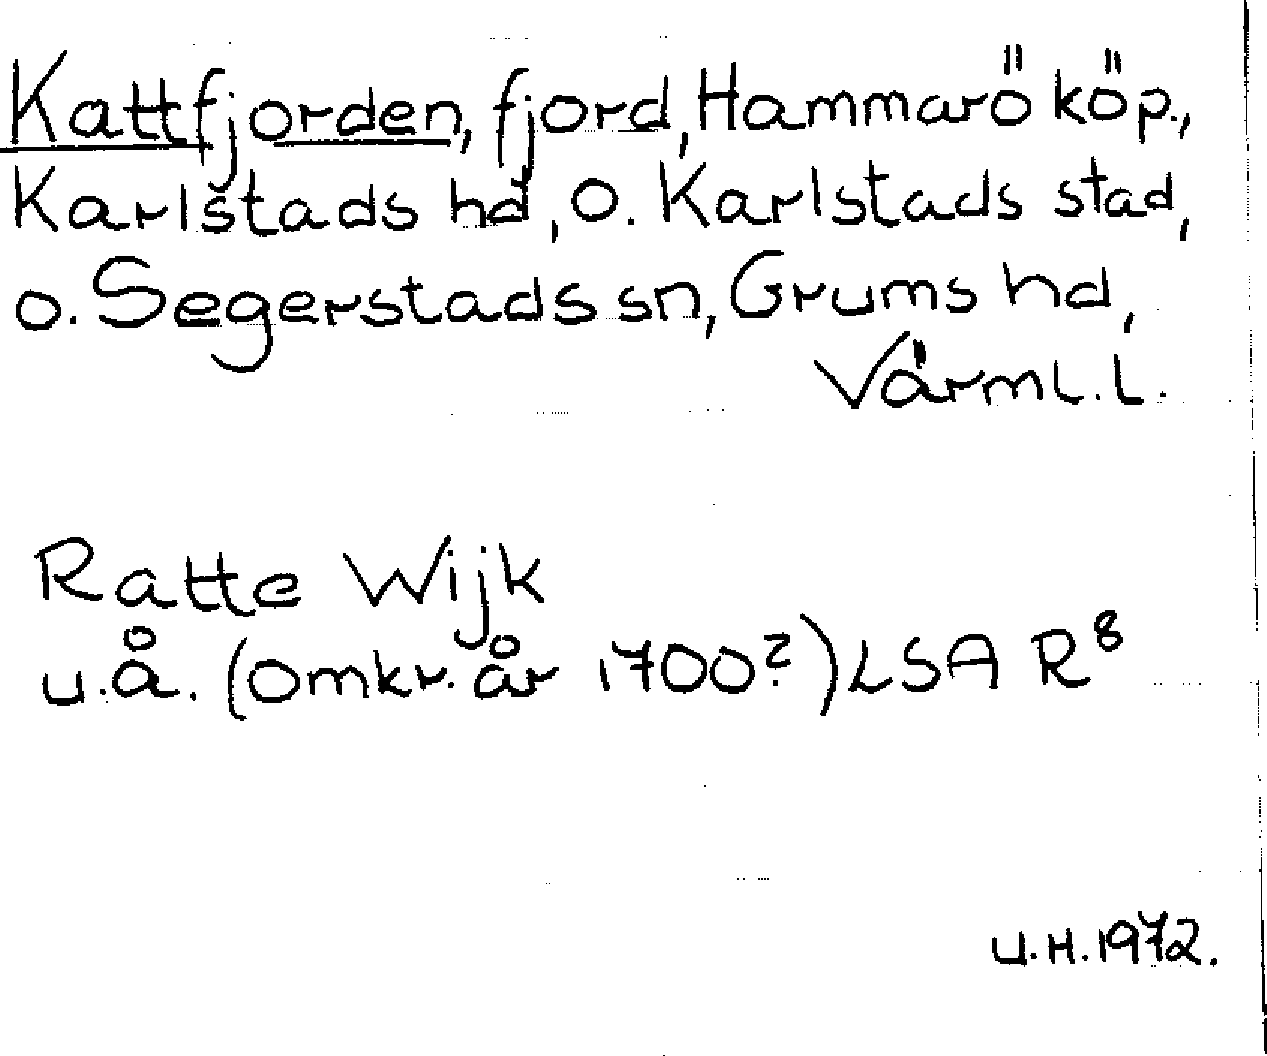 Kattfjorden, fjord, Hammarö köp.,
Karlstads hd, o. Karlstads stad,
o. Segerstads sn, Grums hd,
Värml. l.
Ratte Wijk
u.å. (omkr. år 1700?) LSA R⁸
U.H. 1972.